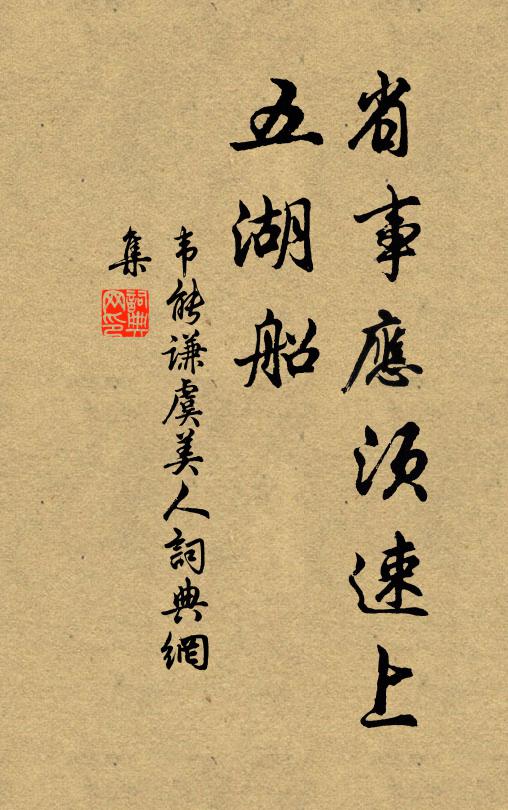 省事應須速上
五湖船
韦能谦虞美人詞典網
集
詞典网印